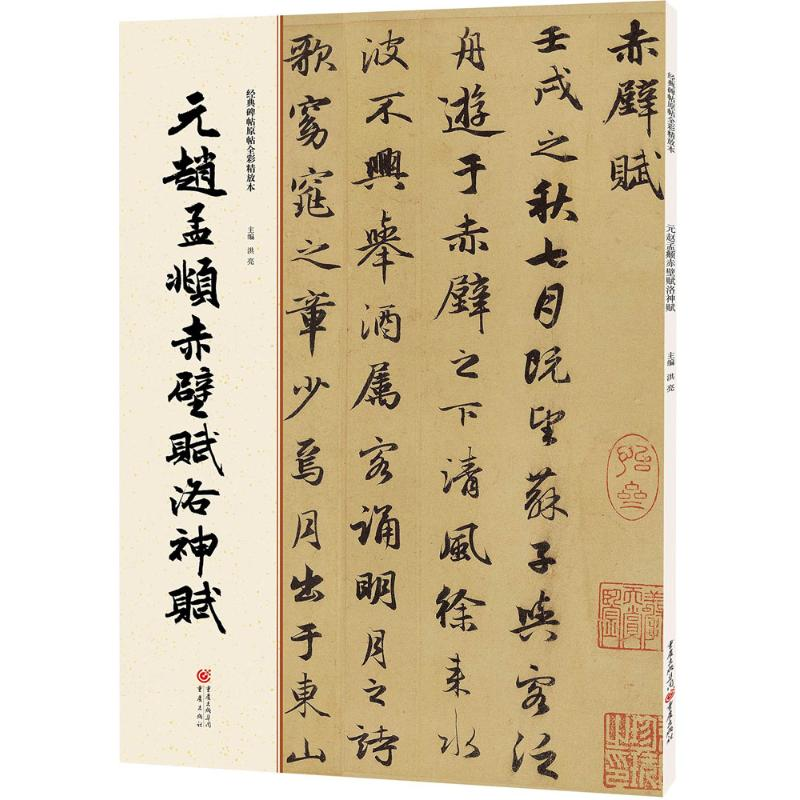 经典碑帖原帖全彩精放本
主编 洪亮
元趙孟頫赤壁賦洛神賦
重庆出版集团
重庆出版社
赤壁賦
壬戌之秋七月既望蘇子與客泛
舟遊于赤壁之下清風徐来水
波不興舉酒属客誦明月之詩
歌窈窕之章少焉月出于東山
经典碑帖原帖全彩精放本
元赵孟頫赤壁赋洛神赋
主编 洪亮
重庆出版集团
重庆出版社